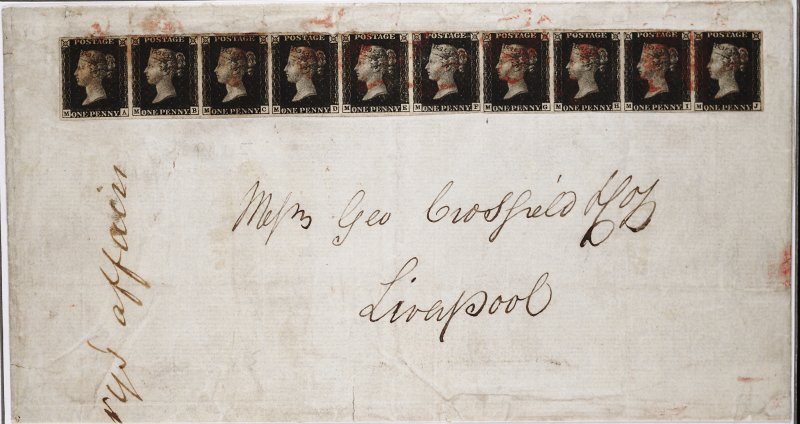 POSTAGE POSTAGE POSTAGE POSTAGE POSTAGE POSTAGE POSTAGE POSTAGE POSTAGE POSTAGE
M ONE PENNY A M ONE PENNY B M ONE PENNY C M ONE PENNY D M ONE PENNY E M ONE PENNY F M ONE PENNY G M ONE PENNY H M ONE PENNY I M ONE PENNY J
Messrs Geo Crosfield & Co
Liverpool
affairs